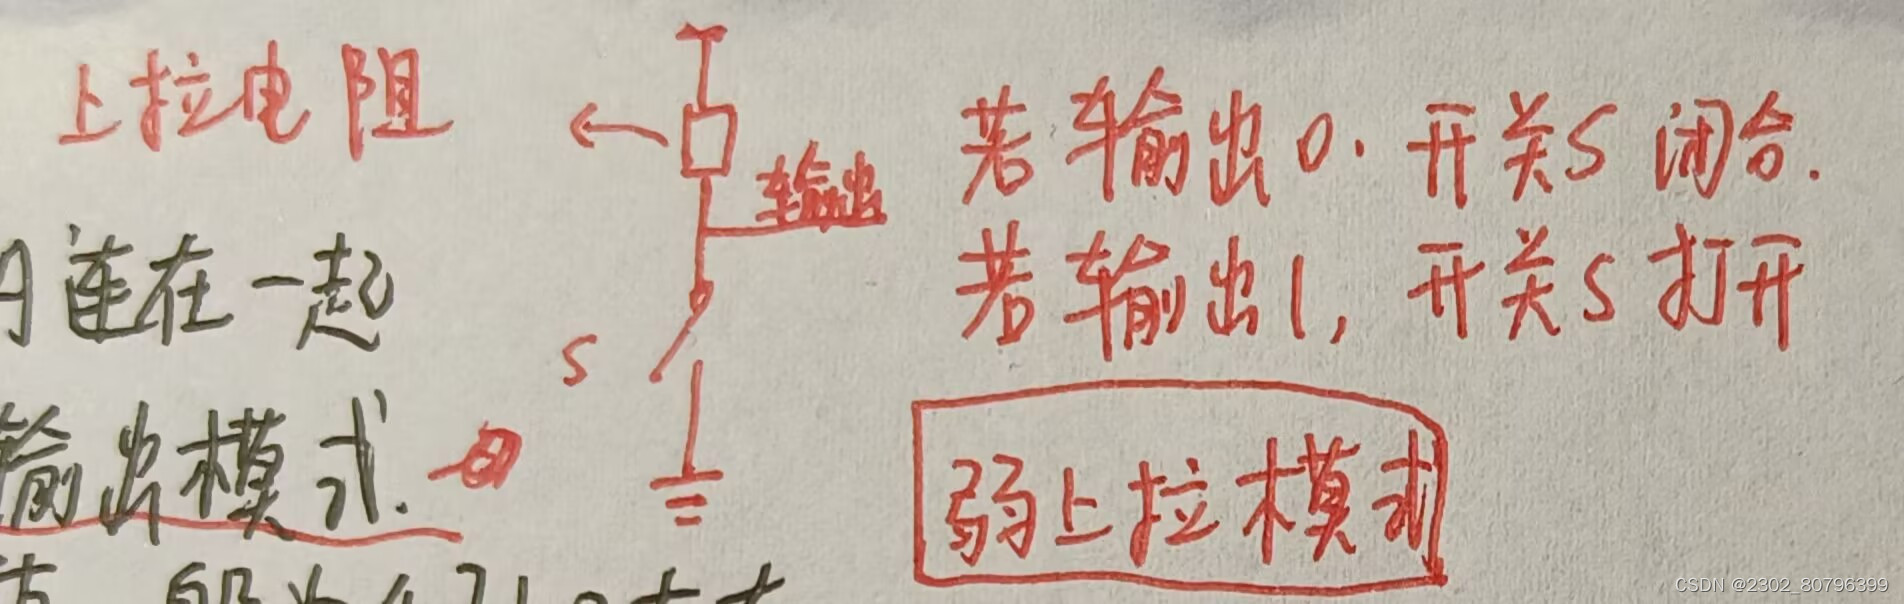 上拉电阻
输出
若输出0.开关S闭合.
若输出1,开关S打开
连在一起
S
输出模式.
弱上拉模式
CSDN @2302_80796399